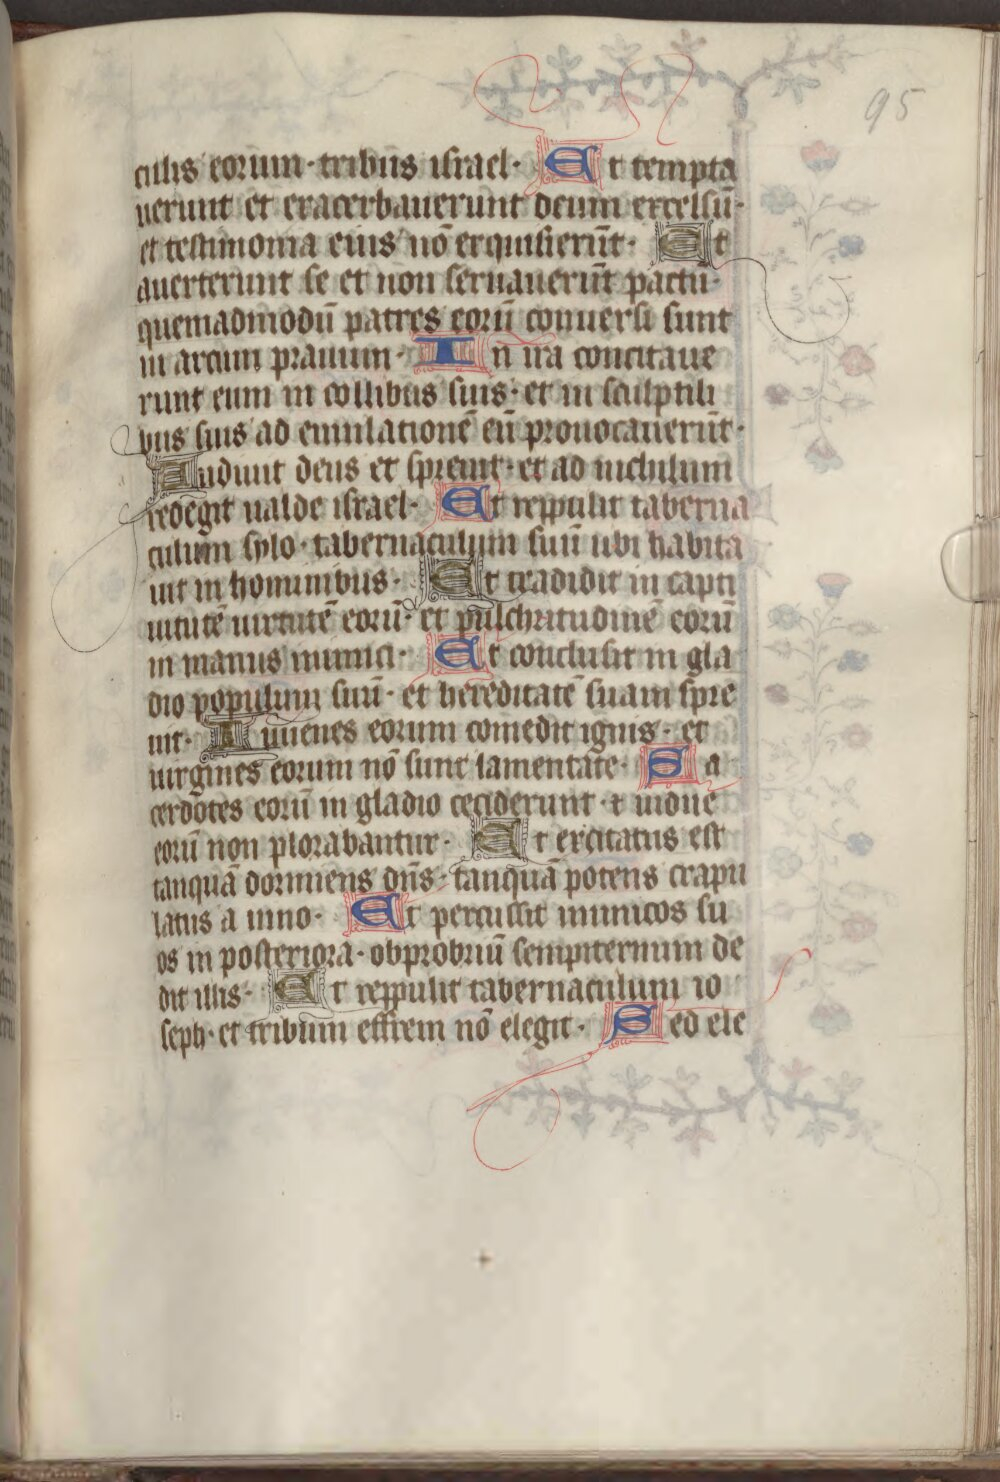 95
culis eorum · tribus israel · Et tempta
uerunt et exacerbauerunt deum excelsū ·
et testimonia eius nō exquisierūt · Et
auerterunt se et non seruauerūt pactū ·
quemadmodū patres eorū conuersi sunt
in arcum prauum · In ira concitaue
runt eum in collibus suis · et in sculptili
bus suis ad emulationē eū prouocauerūt ·
Audiuit deus et spreuit · et ad nichilum
redegit ualde israel · Et reppulit taberna
culum sylo · tabernaculum suū ubi habita
uit in hominibus · Et tradidit in capti
uitatē uirtutē eorū · et pulchritudinē eorū
in manus inimici · Et conclusit in gla
dio populum suū · et hereditatē suam spre
uit · Iuuenes eorum comedit ignis · et
uirgines eorum nō sunt lamentate · Sa
cerdotes eorū in gladio ceciderunt · ⁊ uidue
eorū non plorabantur · Et excitatus est
tanquā dormiens dn̄s · tanquā potens crapu
latus a uino · Et percussit inimicos su
os in posteriora · obprobriū sempiternum de
dit illis · Et reppulit tabernaculum io
seph · et tribum effrem nō elegit · Sed ele